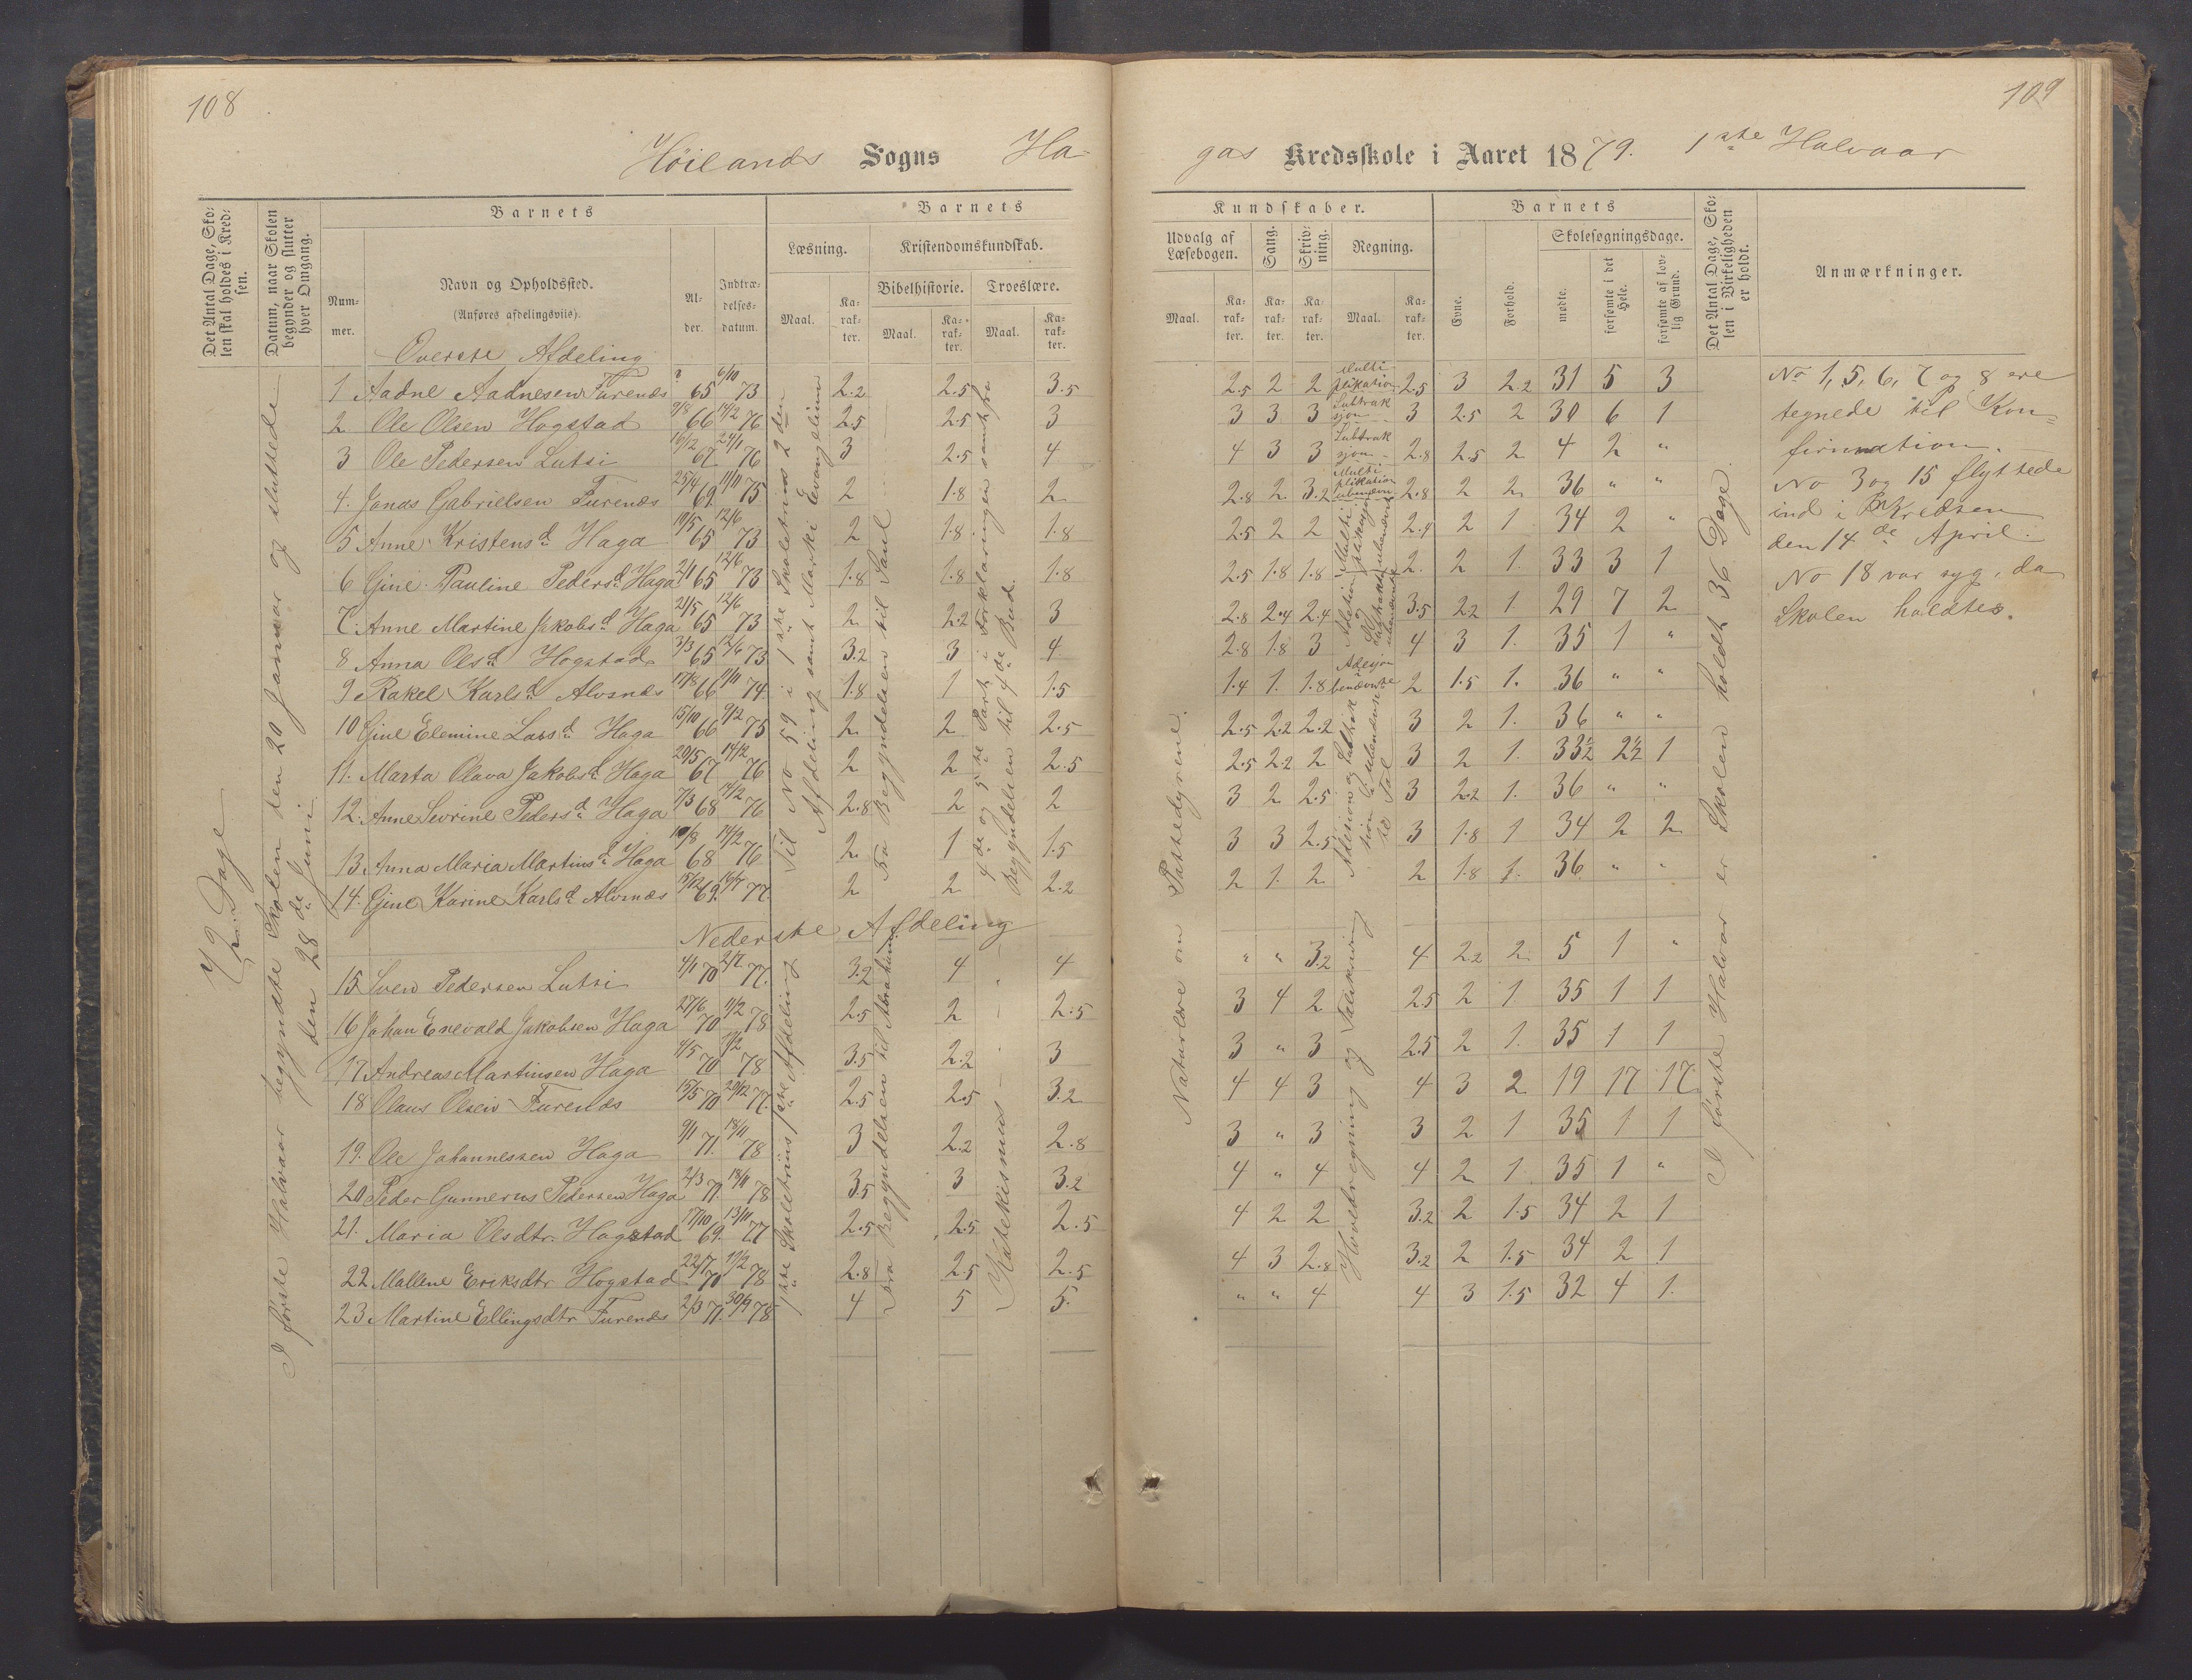 108
109
Höilands Sogns Ha-
gas Kredsskole i Aaret 1879. 1ste Halvaar
Det Antal Dage, Skolen skal holdes i Kredsen.
Datum, naar Skolen begynder og slutter hver Omgang.
Barnets
Nummer.
Navn og Opholdssted.
(Anføres afdelingsviis).
Alder.
Indtrædelsesdatum.
Barnets
Læsning.
Kristendomskundskab.
Bibelhistorie.
Troeslære.
Maal.
Karakter.
Maal.
Karakter.
Maal.
Karakter.
Kundskaber.
Udvalg af Læsebogen.
Sang.
Skrivning.
Regning.
Maal.
Karakter.
Karakter.
Karakter.
Maal.
Karakter.
Barnets
Evne.
Forhold.
Skolesøgningsdage.
mødte.
forsømte i det Hele.
forsømte af lovlig Grund.
Det Antal Dage, Skolen i Virkeligheden er holdt.
Anmærkninger.
72 Dage
I første Halvaar begyndte Skolen den 20 Januar og sluttede
den 28de Juni
Øverste Afdeling
1 Aadne Aadnesen Furenes ? 65 6/10 73 2.2 2.5 3.5 2.5 2 2 2.5 3 2.2 31 5 3
2 Ole Olsen Hogstad 9/8 66 14/2 76 2.5 2.5 3 3 3 3 3 2.5 2 30 6 1
3 Ole Pedersen Lutsi 16/2 67 24/1 76 3 2.5 4 4 3 3 2.8 2.5 2 4 2 "
4. Jonas Gabrielsen Furenes 25/4 69 11/11 75 2 1.8 2 2.8 2 3.2 2.8 2 2 36 " "
5 Anne Kristensd. Haga 10/5 65 12/6 73 2 1.8 1.8 2.5 2 2 2.4 2 1 34 2 "
6 Gine Pauline Pedersd. Haga 2/1 65 12/6 73 1.8 1.8 1.8 2.5 1.8 1.8 2. 2 1. 33 3 1
7. Anne Martine Jakobsd. Haga 21/5 65 12/6 73 2 2.2 3 2.8 2.4 2.4 3.5 2.2 1. 29 7 2
8 Anna Olsd. Hogstad 3/3 65 12/6 73 3.2 3 4 2.8 1.8 3 4 3 1. 35 1 "
9 Rakel Karlsd. Alvsnes 17/8 66 2/11 74 1.8 1 1.5 1.4 1. 1.8 2 1.5 1. 36 " "
10 Gine Elemine Larsd. Haga 15/10 66 9/2 75 2 2 2.5 2.5 2.2 2.2 3 2 1. 36 " "
11. Marta Olava Jakobsd. Haga 20/5 67 14/2 76 2 2 2.5 2.5 2.2 2 3 2 1. 33½ 2½ 1
12. Anne Sevrine Pedersd. Haga 7/3 68 14/2 76 2.8 2 2 3 2 2.5 3 2.2 1. 36 " "
13. Anna Maria Martinsd. Haga 10/8 68 14/2 76 2 1 1.5 3 3 2.5 3 1.8 1 34 2 2
14. Gine Karine Karlsd. Alvsnes 15/12 69. 16/7 77. 2 2 2.2 2 1. 2 2 1.8 1. 36 " "
Til No 59 i 1ste Skoletrins 2den
Afdeling samt Marki Evangelium
Fra Begyndelsen til Saul
4de og 5te Part i Forklaringen samt fra
Begyndelsen til 4de Bud.
Naturlære om Pattedyrene.
Multiplikation
Subtraksjon
Subtraksjon
Multiplikation ubenævn.
Adesjon benævnte
Nederste Afdeling
15. Sven Pedersen Lutsi 4/1 70 2/7 77. 3.2 4 4 " " 3.2 4 2.2 2 5 1 "
16 Johan Enevald Jakobsen Haga 27/6 70 11/2 78 2.5 2 2.5 3 4 2 2.5 2 1 35 1 1
17 Andreas Martinsen Haga 4/5 70 7/2 78 3.5 2.2 3 3 " 3 2.5 2 1. 35 1 1
18 Olaus Olsen Furenes 15/5 70 20/12 77. 2.5 2.5 3.2 4 4 3 4 3 2 19 17 17
19. Ole Johannessen Haga 9/1 71. 18/11 78 3 2.2 2.8 3 " 3 3 2 1 35 1 1
20. Peder Gunnerus Pedersen Haga 2/3 71. 18/11 78 3.5 3 3.2 4 " 4 4 2 1 35 1 "
21. Maria Olsdtr. Hogstad 17/10 69. 13/11 77 2.5 2.5 2.5 4 2 2 3.2 2 1.5 34 2 1
22 Mallene Eriksdtr Hogstad 22/7 70 17/2 78 2.8 2.5 2.5 4 3 2.8 3.2 2 1.5 34 2 1
23. Martine Ellingsdtr Furenes 2/3 71. 30/9 78 4 5 5. " " 4 4 3 1.5 32 4 1.
1ste Skoletrins 1ste Afdeling
Fra Begyndelsen til Abraham
Katekismus
Hovedregning og Talskrivning
I første Halvaar er Skolen holdt 36 Dage.
No 1, 5, 6, 7 og 8 ere
tegnede til Kon=
firmation.
No 3 og 15 flyttede
ind i Kredsen
den 14de April.
No 18 var syg, da
Skolen holdtes.